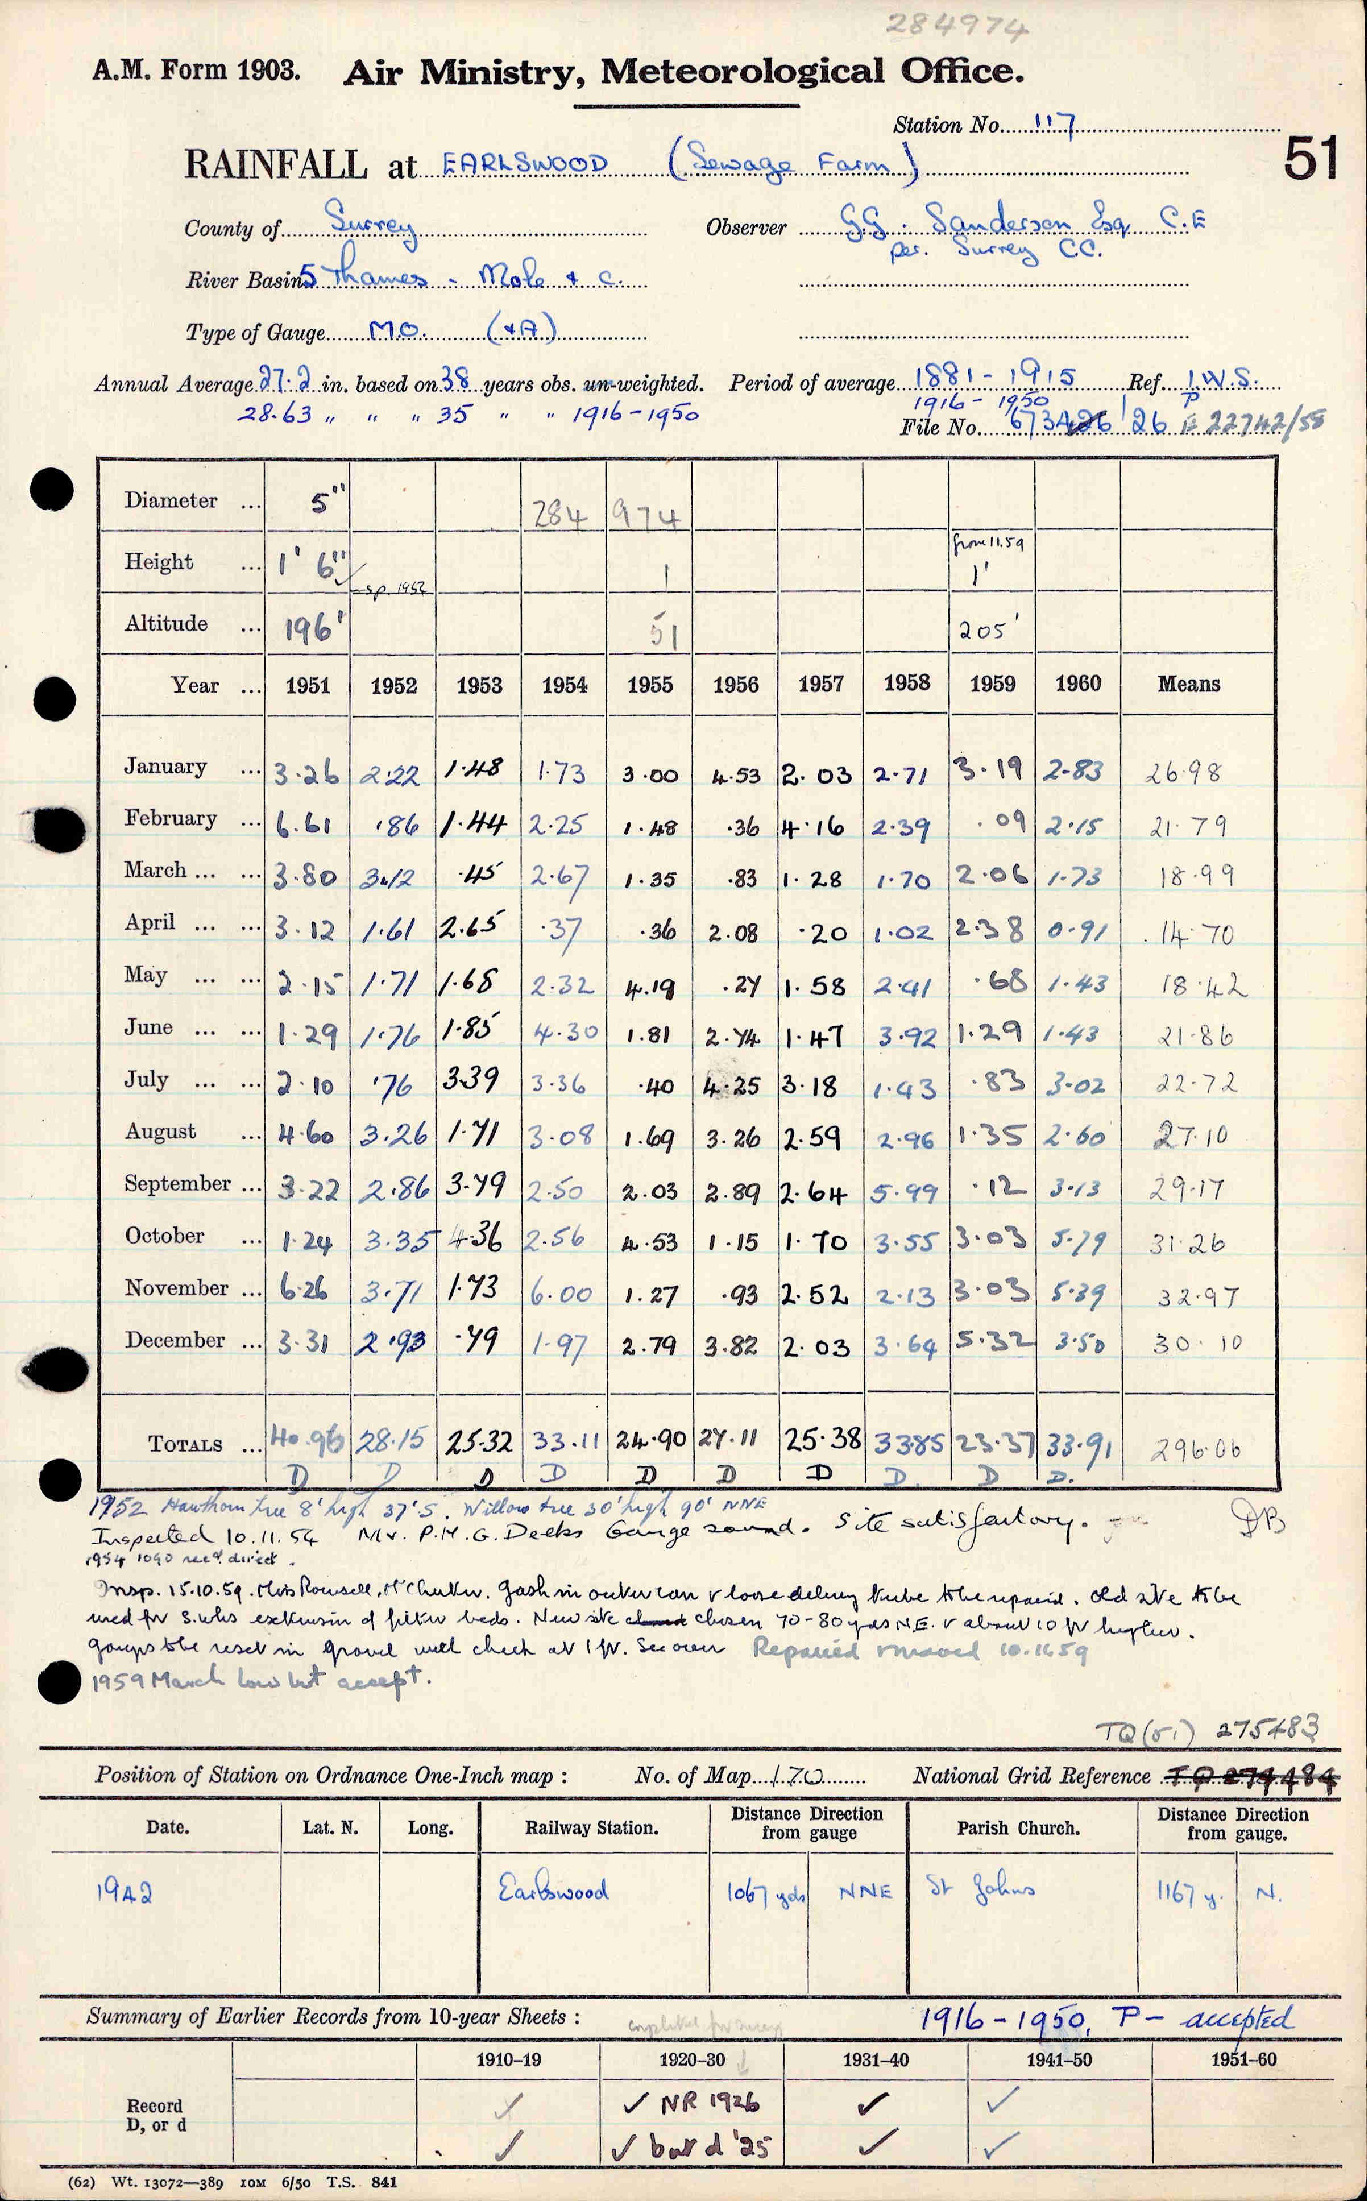 284974
A.M. Form 1903. Air Ministry, Meteorological Office.
Station No. 117
51
RAINFALL at EARLSWOOD (Sewage Farm)
County of Surrey Observer G.G. Sanderson Esq. C.E
per. Surrey C.C.
River Basin 5 Thames - Mole & c.
Type of Gauge MO. (+A)
Annual Average 27.2 in. based on 38 years obs. un-weighted. Period of average 1881-1915 Ref. I.W.S.
28.63 " " " 35 " " 1916-1950 1916-1950 P
File No. 673426/26 22742/58
Diameter ... 5" 284 974
Height ... 1' 6" sp. 1952 1 from 11.59 1'
Altitude ... 196' 51 205'
Year ... 1951 1952 1953 1954 1955 1956 1957 1958 1959 1960 Means
January ... 3.26 2.22 1.48 1.73 3.00 4.53 2.03 2.71 3.19 2.83 26.98
February ... 6.61 .86 1.44 2.25 1.48 .36 4.16 2.39 .09 2.15 21.79
March ... ... 3.80 3.12 .45 2.67 1.35 .83 1.28 1.70 2.06 1.73 18.99
April ... ... 3.12 1.61 2.65 .37 .36 2.08 .20 1.02 2.38 0.91 14.70
May ... ... 2.15 1.71 1.68 2.32 4.19 .27 1.58 2.41 .68 1.43 18.42
June ... ... 1.29 1.76 1.85 4.30 1.81 2.74 1.47 3.92 1.29 1.43 21.86
July ... ... 2.10 .76 3.39 3.36 .40 4.25 3.18 1.43 .83 3.02 22.72
August ... 4.60 3.26 1.71 3.08 1.69 3.26 2.59 2.96 1.35 2.60 27.10
September ... 3.22 2.86 3.79 2.50 2.03 2.89 2.64 5.99 .12 3.13 29.17
October ... 1.24 3.35 4.36 2.56 4.53 1.15 1.70 3.55 3.03 5.79 31.26
November ... 6.26 3.71 1.73 6.00 1.27 .93 2.52 2.13 3.03 5.39 32.97
December ... 3.31 2.93 .79 1.97 2.79 3.82 2.03 3.64 5.32 3.50 30.10
TOTALS ... 40.96 28.15 25.32 33.11 24.90 27.11 25.38 33.85 23.37 33.91 296.06
D D D D D D D D D D.
1952 Hawthorn tree 8' high 37' S. Willow tree 30' high 90' NNE
Inspected 10.11.54 Mr. P.H.G. Deeks Gauge sound. Site satisfactory. DB
1954 1090 rec'd direct.
Insp. 15.10.59. Gash in outer can & loose delivery tube to be repaired. Old site to be
used for extension of filter beds. New site chosen 70-80 yds N.E. & about 10 ft higher.
gauge to be reset in ground well check at 1 ft. See over Repaired & moved 10.11.59
1959 March low but accept.
TQ(51) 275483
Position of Station on Ordnance One-Inch map : No. of Map 170 National Grid Reference TQ 274484
Date. Lat. N. Long. Railway Station. Distance Direction from gauge Parish Church. Distance Direction from gauge.
1942 Earlswood 1067 yds NNE St Johns 1167 y. N.
Summary of Earlier Records from 10-year Sheets : 1916-1950, P - accepted
1910-19 1920-30 1931-40 1941-50 1951-60
Record ✓ ✓ NR 1926 ✓ ✓
D, or d ✓ ✓ but d '25 ✓ ✓
(62) Wt. 13072—389 10M 6/50 T.S. 841